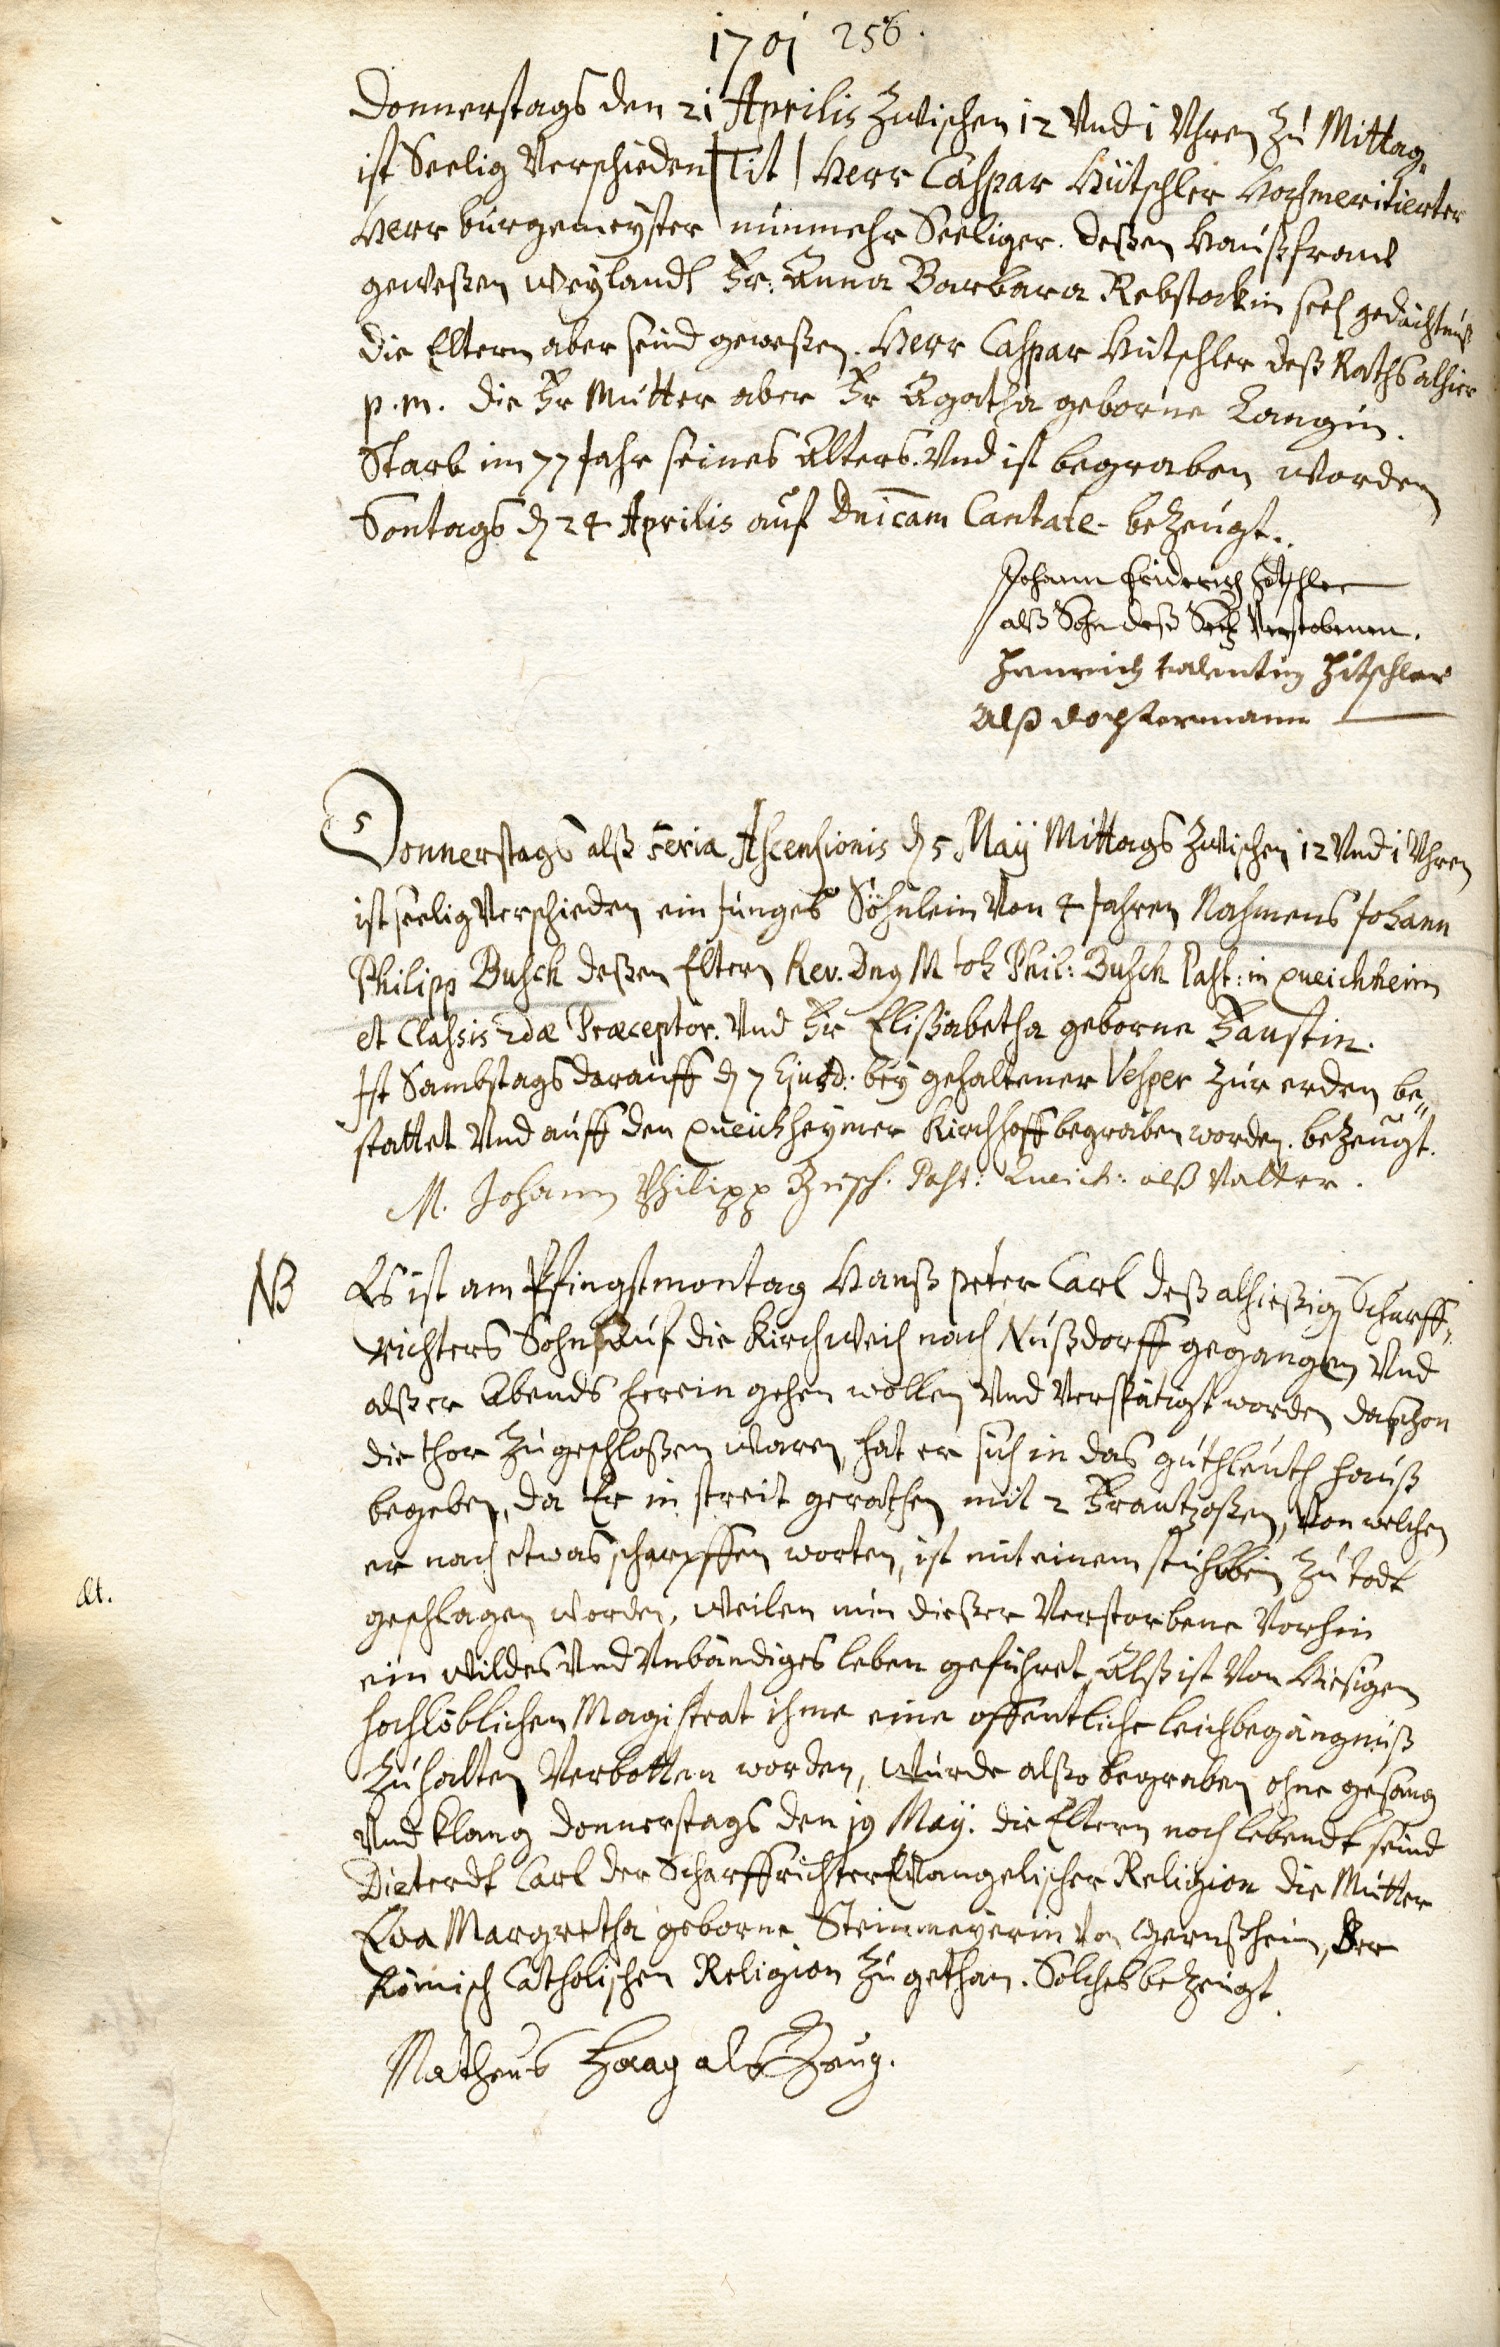 1701 256.
Donnerstags den 21 Aprilis Zwischen 12 Vnd 1 Vhren Zu Mittag,
ist Seelig Verschieden | Tit | Herr Caspar Hütschler Hochmeritierter
Herr burgemeyster nunmehr Seeliger. deßen Haußfraw
geweßen Weylandt Fr: Anna Barbara Rebstockin seel gedächtnuß
die Eltern aber seind geweßen. Herr Caspar Hütschler deß Raths alhier
p. m. die Fr Mutter aber Fr Agatha geborne Langin.
Starb im 77 Jahr seines Alters. Vnd ist begraben worden
Sontags d 24 Aprilis auf Dnicam Cantate bezeugt.
Johann Friderich Hitschler
alß Sohn deß Seel Verstobenen.
Henrich Valentin Hitschler
Alß dochtermann
5
Donnerstags alß Feria Ascensionis d 5 Maÿ Mittags Zwischen 12 Vnd 1 Vhren
ist seelig Verschieden ein Junges Söhnlein Von 4 Jahren Nahmens Johann
Philipp Busch deßen Eltern Rev. Dnq M Joh Phil: Busch Past: in Queichheim
et Classis 2dæ Præceptor. Vnd Fr Elißabetha geborne Faustin.
Ist Sambstags darauff d 7 Ejusd: bey gehaltener Vesper Zur erden be„
stattet Vnd auff den Queichheymer Kirchhoff begraben worden. bezeugt.
M. Johann Philipp Busch. Past: Queich: alß Vatter.
NB Es ist am Pfingstmontag Hanß peter Carl deß alhießig Scharff„
richters Sohn Auf die Kirchweih nach Nußdorff gegangen Vnd
alß er Abends herein gehen wollen Vnd Verspätigt worden da schon
die thor Zugeschloßen waren, hat er sich in das guthleuth hauß
begeben, da Er in streit gerathen mit 2 Frantzoßen, Von welchen
er nach etwas scharpffen worten, ist mit einem stuhlbein Zu todt
Æt.
geschlagen worden, Weilen nun dießer Verstorbene Vorhin
ein Wildes Vnd Vnbändiges leben geführet, Alß ist Von Hiesigen
hochlöblichen Magistrat ihme eine offentliche leichbegängnuß
Zuhalten Verbotten worden, Wurde alßo begraben ohne gesang
Vnd klang donnerstags den 19 Maÿ. die Eltern noch lebendt seind
Dieterdt Carl der Scharffrichter Evangelischer Religion die Mutter
Eva Margretha geborne Steinmeyerin Von Gernßheim, der
Römisch Catholischen Religion Zugethan. Solches bezeugt
Matheus Haag als Zeug.